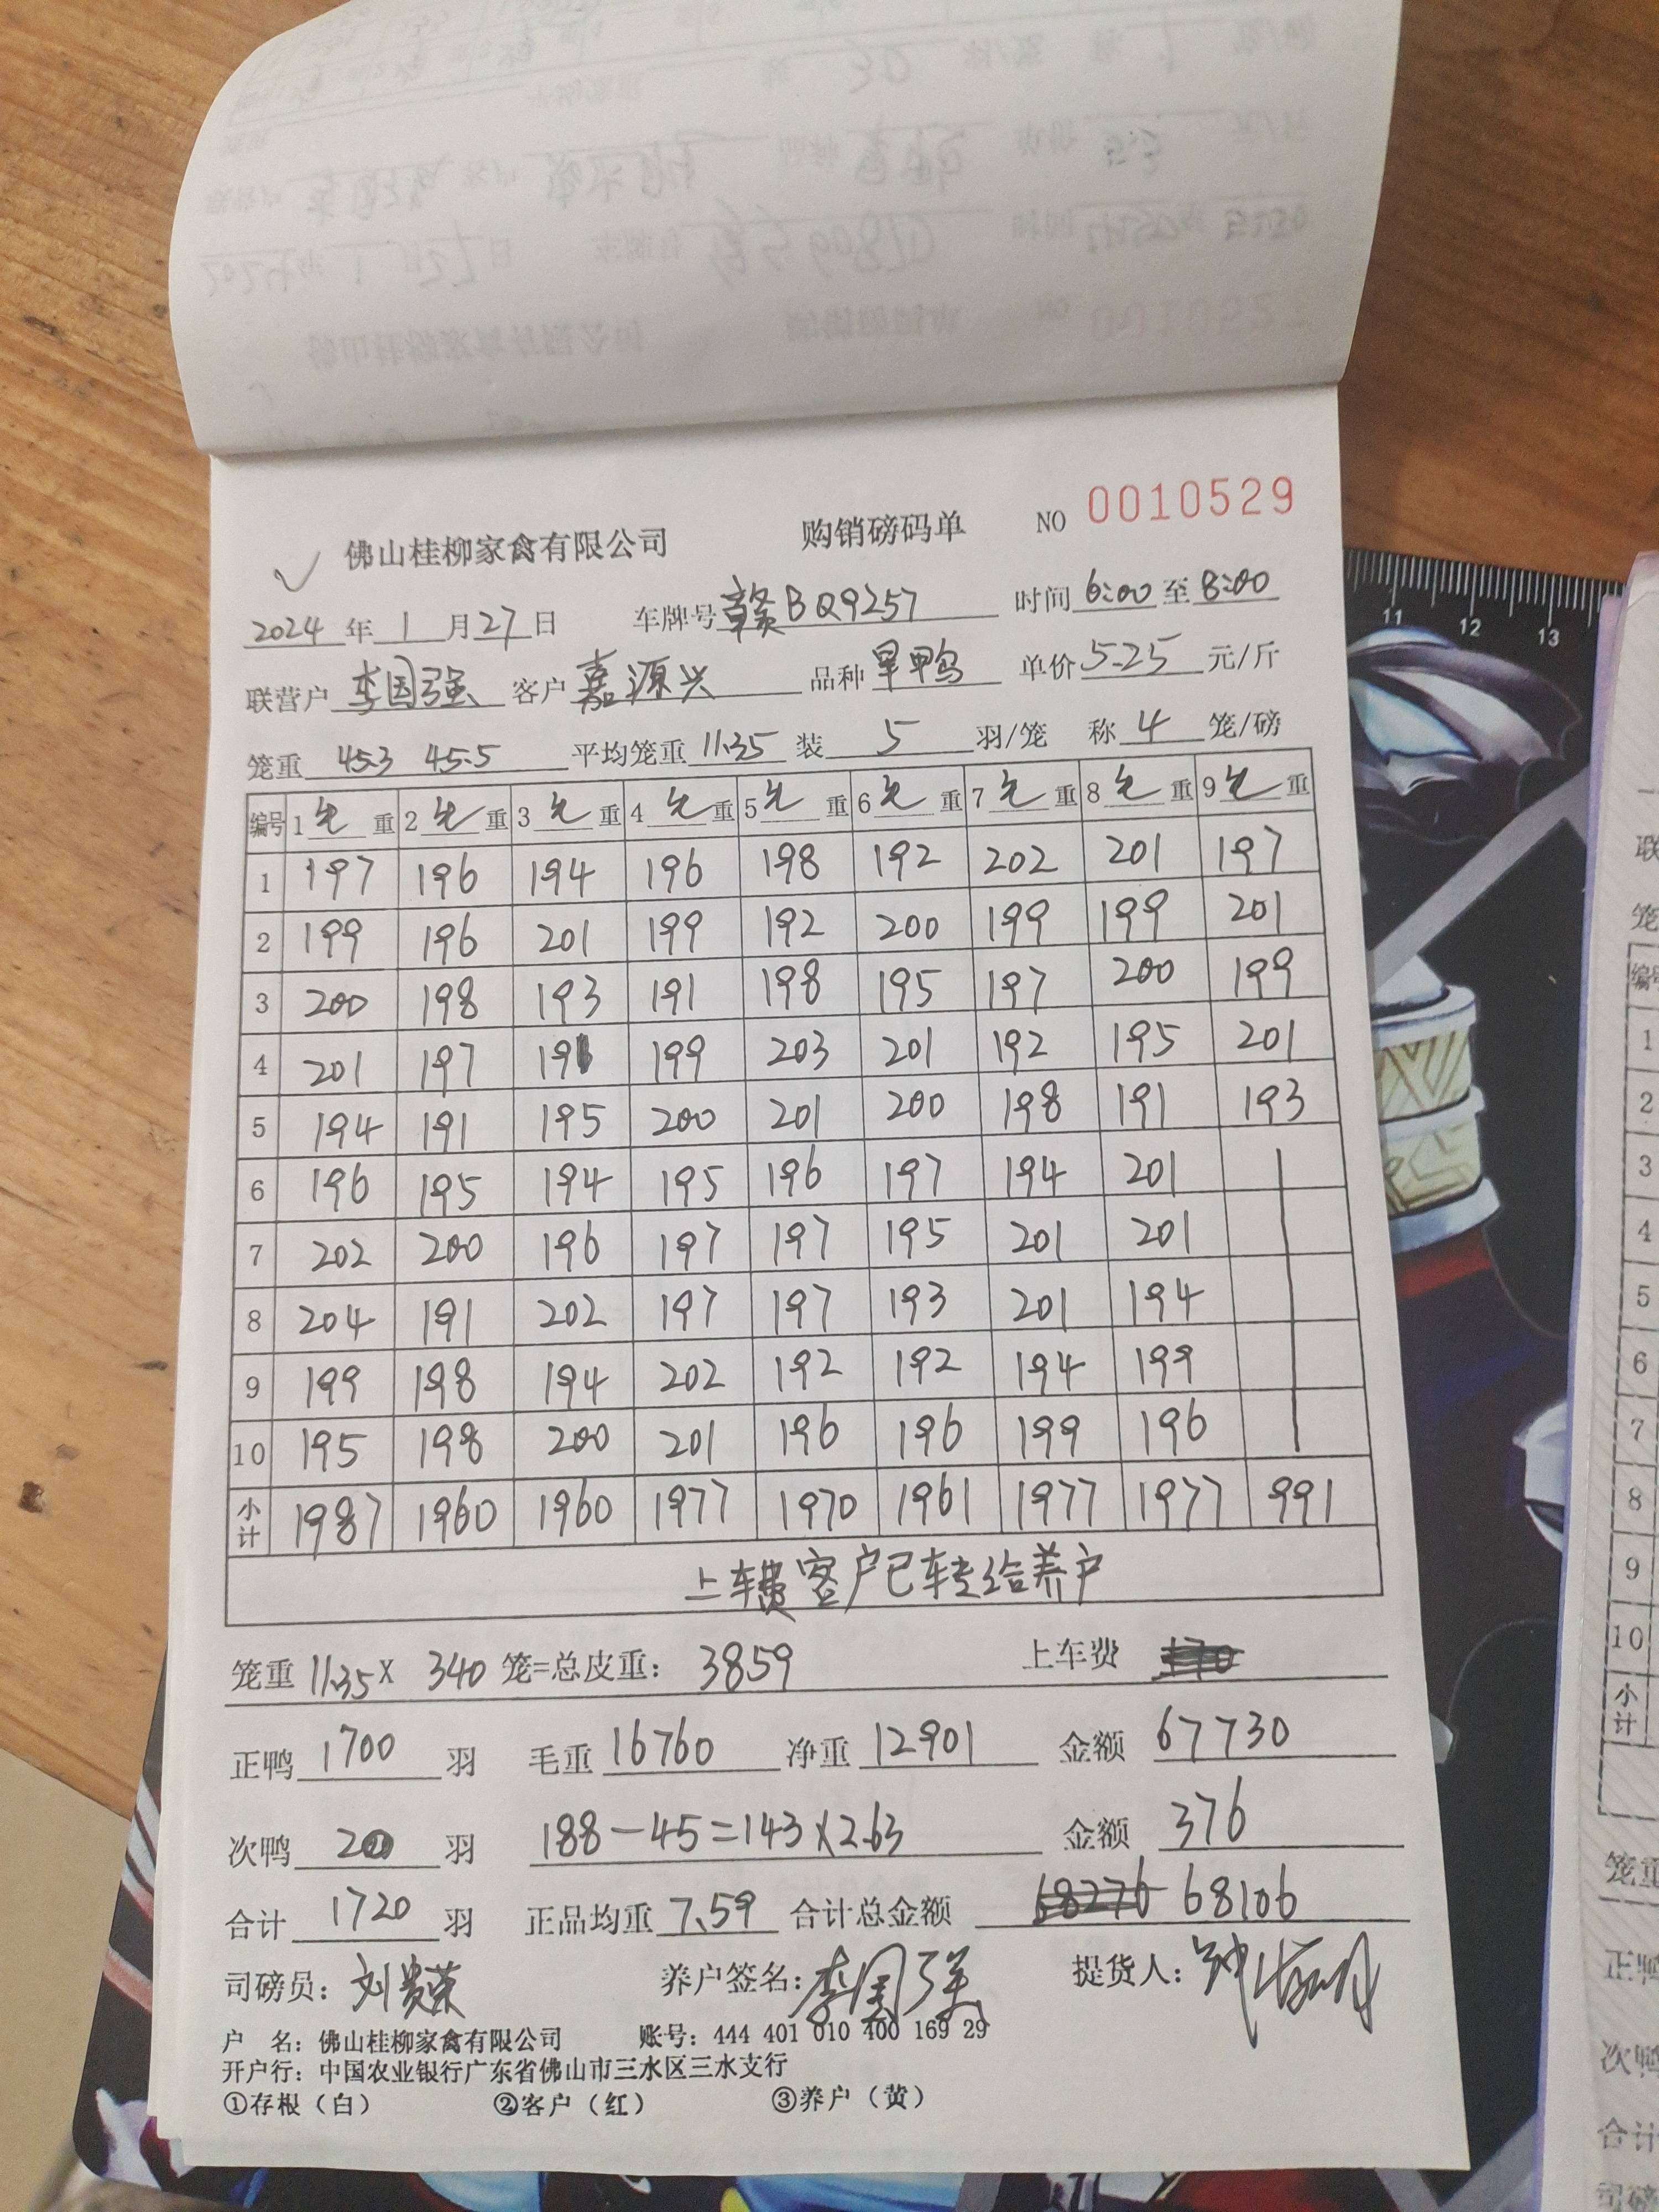 佛山桂柳家禽有限公司 购销磅码单 NO 0010529
2024 年 1 月 27 日 车牌号 赣BQ9257 时间 6:00 至 8:00
联营户 李国强 客户 嘉源兴 品种 旱鸭 单价 5.25 元/斤
笼重 45.3 45.5 平均笼重 11.35 装 5 羽/笼 称 4 笼/磅
编号 1 毛 重 2 毛 重 3 毛 重 4 毛 重 5 毛 重 6 毛 重 7 毛 重 8 毛 重 9 毛 重
1 197 196 194 196 198 192 202 201 197
2 199 196 201 199 192 200 199 199 201
3 200 198 193 191 198 195 197 200 199
4 201 197 191 199 203 201 192 195 201
5 194 191 195 200 201 200 198 191 193
6 196 195 194 195 196 197 194 201
7 202 200 196 197 197 195 201 201
8 204 191 202 197 197 193 201 194
9 199 198 194 202 192 192 194 199
10 195 198 200 201 196 196 199 196
小计 1987 1960 1960 1977 1970 1961 1977 1977 991
上车费客户已转给养户
笼重 11.35 X 340 笼=总皮重: 3859 上车费 170
正鸭 1700 羽 毛重 16760 净重 12901 金额 67730
次鸭 20 羽 188-45=143×2.63 金额 376
合计 1720 羽 正品均重 7.59 合计总金额 68276 68106
司磅员: 刘贵荣 养户签名: 李国强 提货人:
户 名: 佛山桂柳家禽有限公司 账号: 444 401 010 400 169 29
开户行: 中国农业银行广东省佛山市三水区三水支行
①存根（白） ②客户（红） ③养户（黄）
11 12 13
联
笼
编号
1
2
3
4
5
6
7
8
9
10
小计
笼重
正鸭
次鸭
合计
司磅